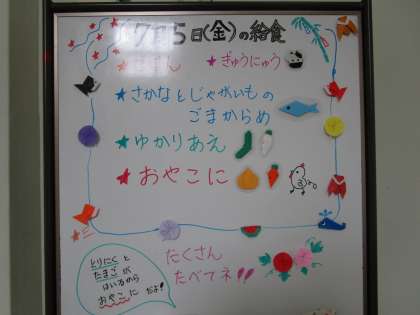 7月5日(金)の給食
★ごはん ★ぎゅうにゅう
★さかなとじゃがいもの
ごまからめ
★ゆかりあえ
★おやこに
とりにくと
たまごが
はいるから
おやこに だよ!
たくさん
たべてネ!!